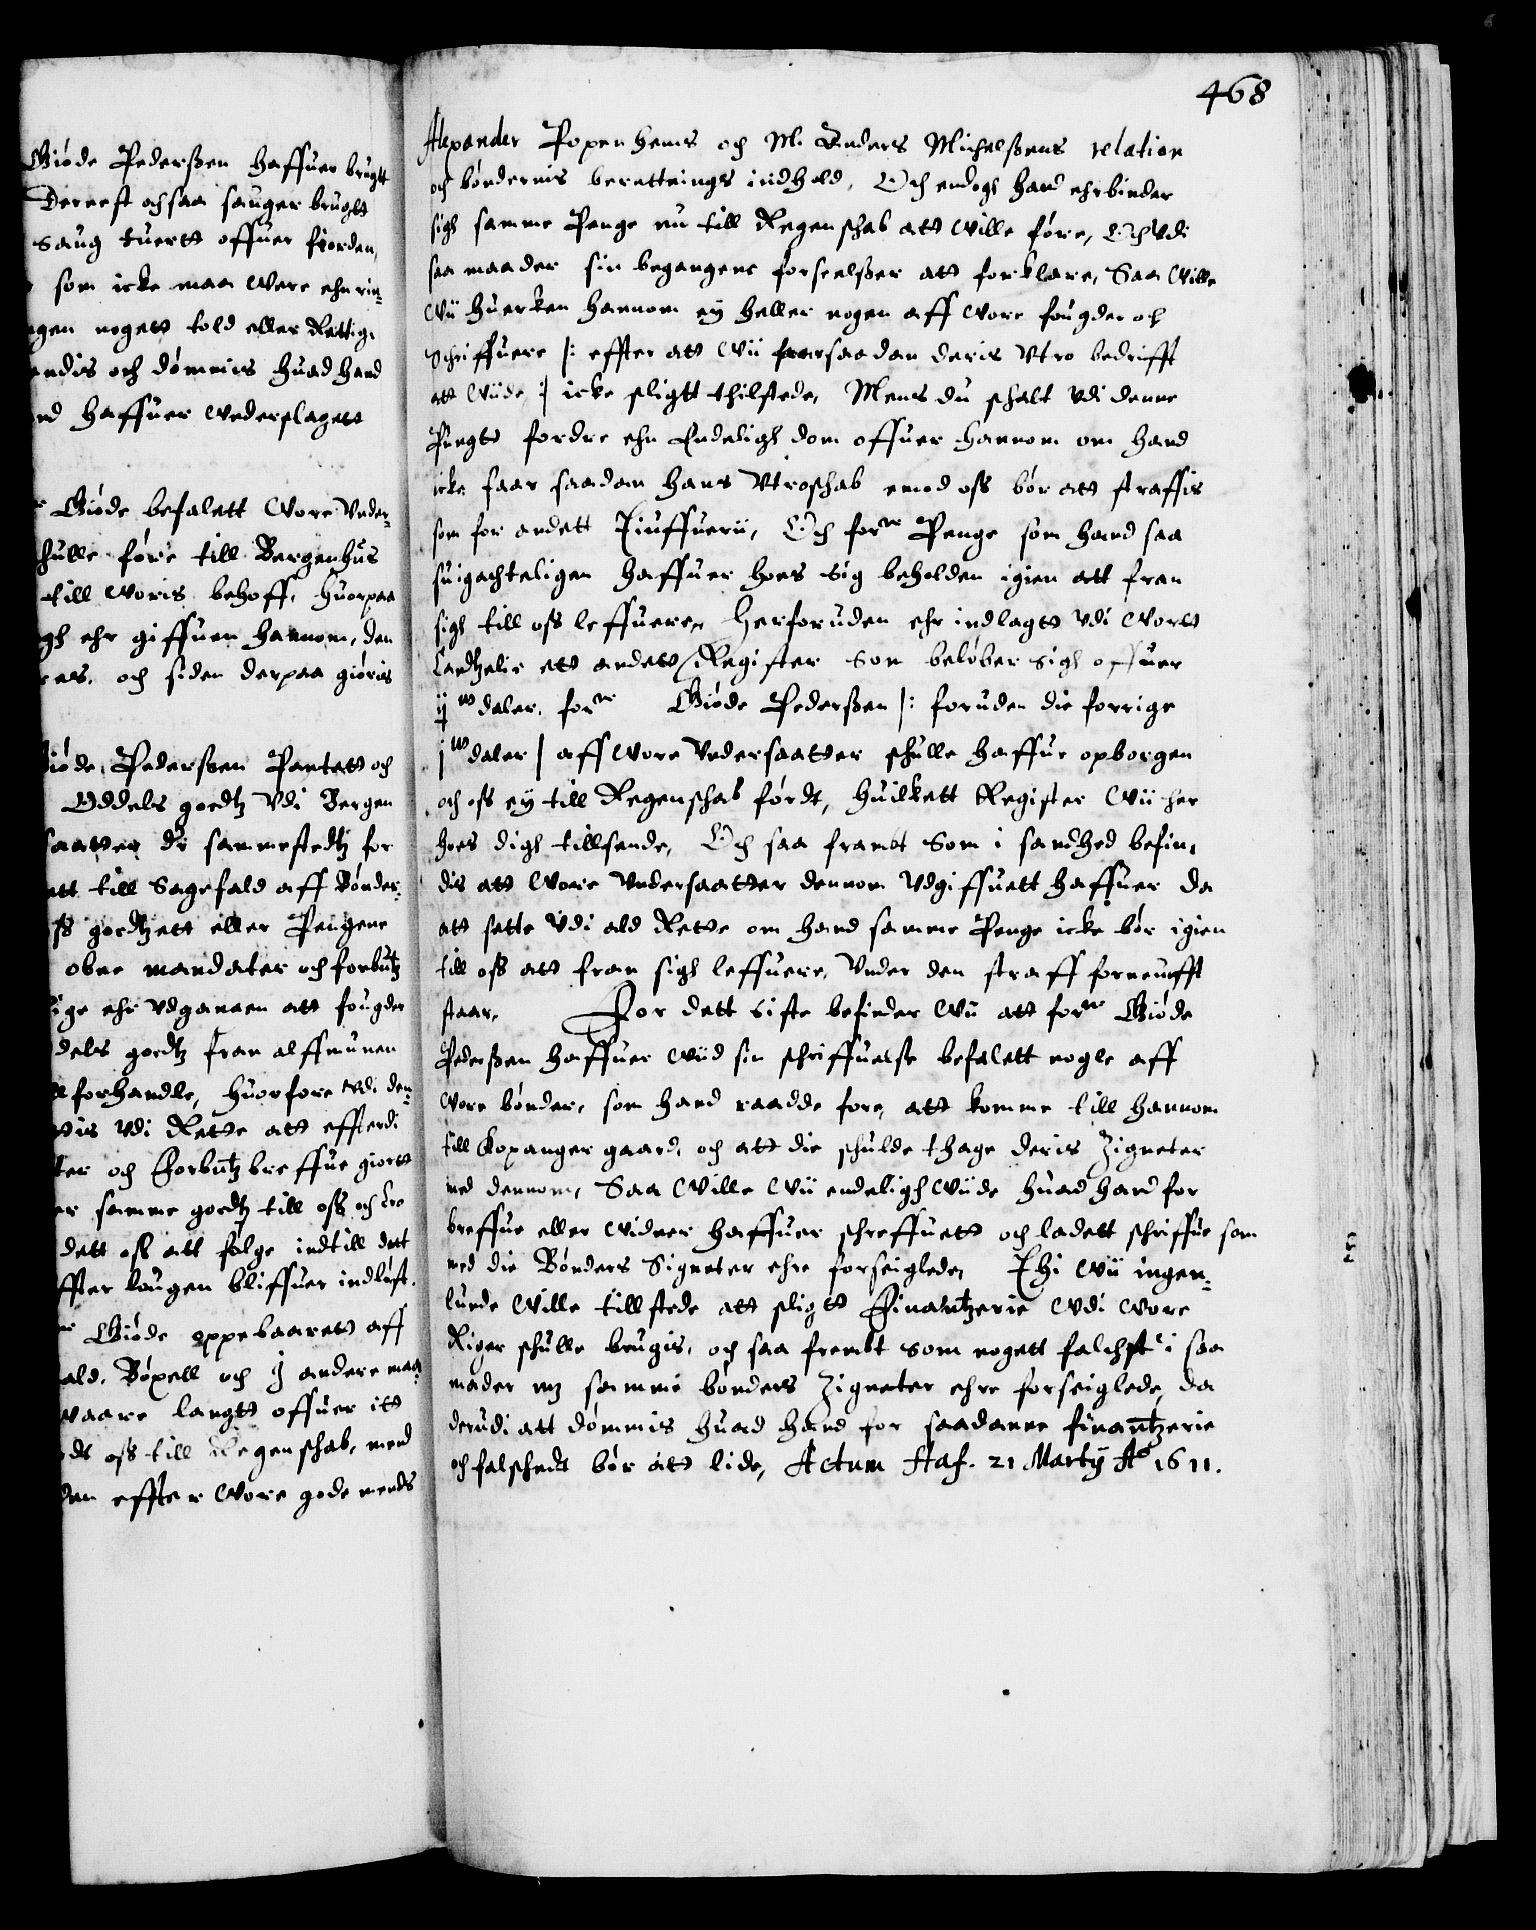 Giøde Pederßen haffuer brugtt
Dernest ochsaa sauger brugtt
saug tuertt offuer fiorden,
som icke maa were ehn rin-
gen nogett told eller Rettig.
endis och dømmis huad hand
haffuer wederslagett
Giøde befalett wore Vnder-
schulle føre till Bergenhus
till woris behoff, huorpaa
ehr giffuen hannom, den
och siden derpaa giøris
Giøde Pederßen Pantett och
Oddels goedtz Vdi Bergen
saatter di sammestedtz for
till Sagefald aff Bønder-
goedtzett eller Pengene
obne mandater och forbutz
ehr vdgangen att fougder
goedtz fran alffmuuen
forhandle, huorfore vdi den-
vdi Rette att effterdi
och Forbutz breffue giortt
samme goedtz till oss och Cro
dett oss att følge indtill dett
effter lougen bliffuer indløst.
Giøde oppebaarett aff
Bøxell och ij andere maa
waare langtt offuer itt
oss till Regenschab, mend
effter wore gode mends
468
Alexander Popenheims och M. Anders Michelßens relation
och bøndernis berettnings indhold. Och endogh hand ehrbinder
sigh samme Penge nu till Regenschab att wille føre, Och vdi
saa maader sin begangene forseelßer att forklare, Saa wille
wii huerken hannom ey heller nogen aff wore fougder och
Schriffuere |: effter att wii faar saadan deris vtro bedrifft
att wiide :| icke sligtt thilstede, Mens du schalt vdi denne
Pungtt fordre ehn Endeligh dom offuer hannom om hand
icke faar saadan hans vtroschab emod oss bør att straffis
som for andett Tiuffuerii, Och forne Penge som hand saa
suigachteligen haffuer hoes sig beholden igien att fran
sigh till oss leffuere, Herforuden ehr indlagtt vdi wortt
Cantzelie ett andett Register som beløber sigh offuer
ij daler, forne Giøde Pederßen |: foruden die forrige
j daler | aff wore vndersaatter schulle haffue opborgen
och oss ey till Regenschab førdt, huilkett Register wii her
hoes digh tillsende, Och saa frambt som i sandhed befin-
dis att wore vndersaatter dennom vdgiffuett haffuer da
att sette vdi ald Rette om hand samme Penge icke bør igien
till oss att fran sigh leffuere, vnder den straff forneunfft
staar, For dett siste befinder wii att forne Giøde
Pederßen haffuer wiid sin schriffuelse befalett nogle aff
wore bønder, som hand raadde fore, att komme till hannom
till Kopanger gaard, och att die schulde thage deris Zigneter
med dennom, Saa wille wii endeligh wiide huad hand for
breffue eller widner haffuer schreffuett och ladett schriffue som
med die Bønders Signeter ehre forseiglede, Thi wii ingen-
lunde wille tillstede att sligtt Finantzerie vdi wore
Riger schulle brugis, och saa frembt som nogett falchst i saa
mader mz samme bønders Zigneter ehre forseiglede, da
derudi att dømmis huad hand for saadanne finantzerie
och falschedt bør att lide, Actum Haf. 21 Martij Ao 1611.